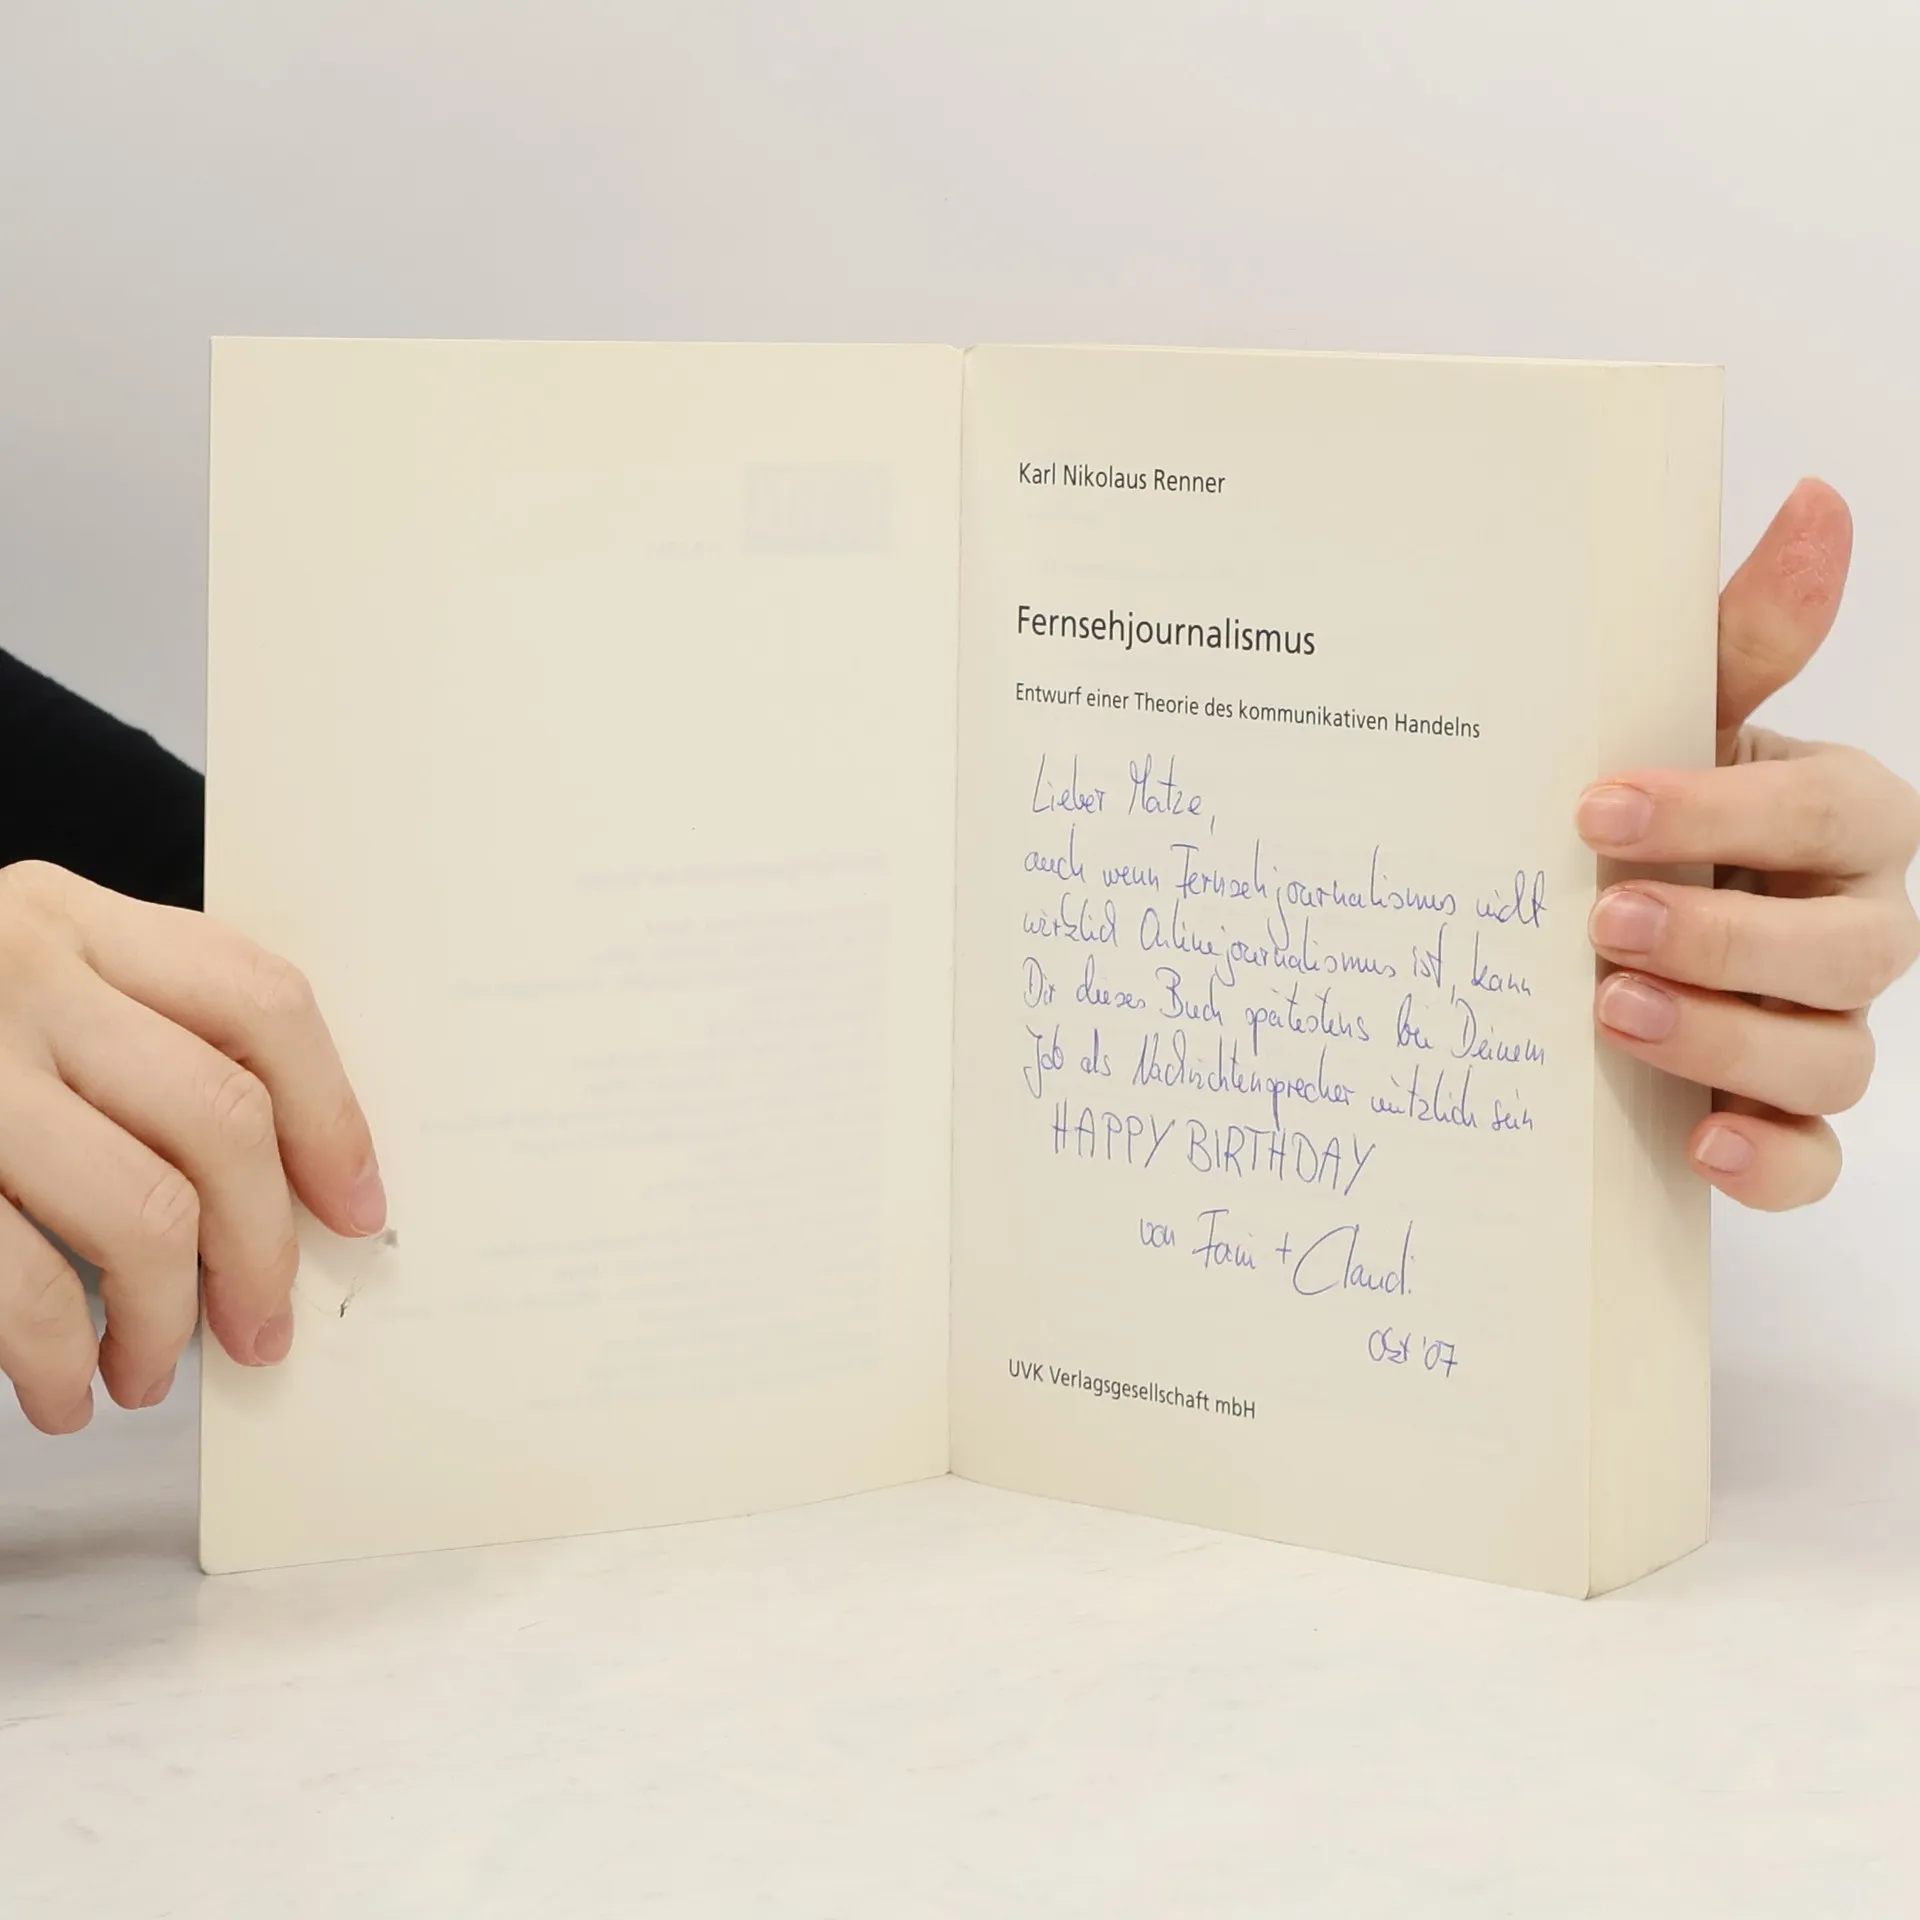 Karl Nikolaus Renner
Fernsehjournalismus
Entwurf einer Theorie des kommunikativen Handelns
Lieber Matze,
auch wenn Fernsehjournalismus nicht
wirklich Onlinejournalismus ist, kann
Dir dieses Buch spätestens bei Deinem
Job als Nachrichtensprecher nützlich sein
HAPPY BIRTHDAY
von Fani + Claudi
Okt '07
UVK Verlagsgesellschaft mbH